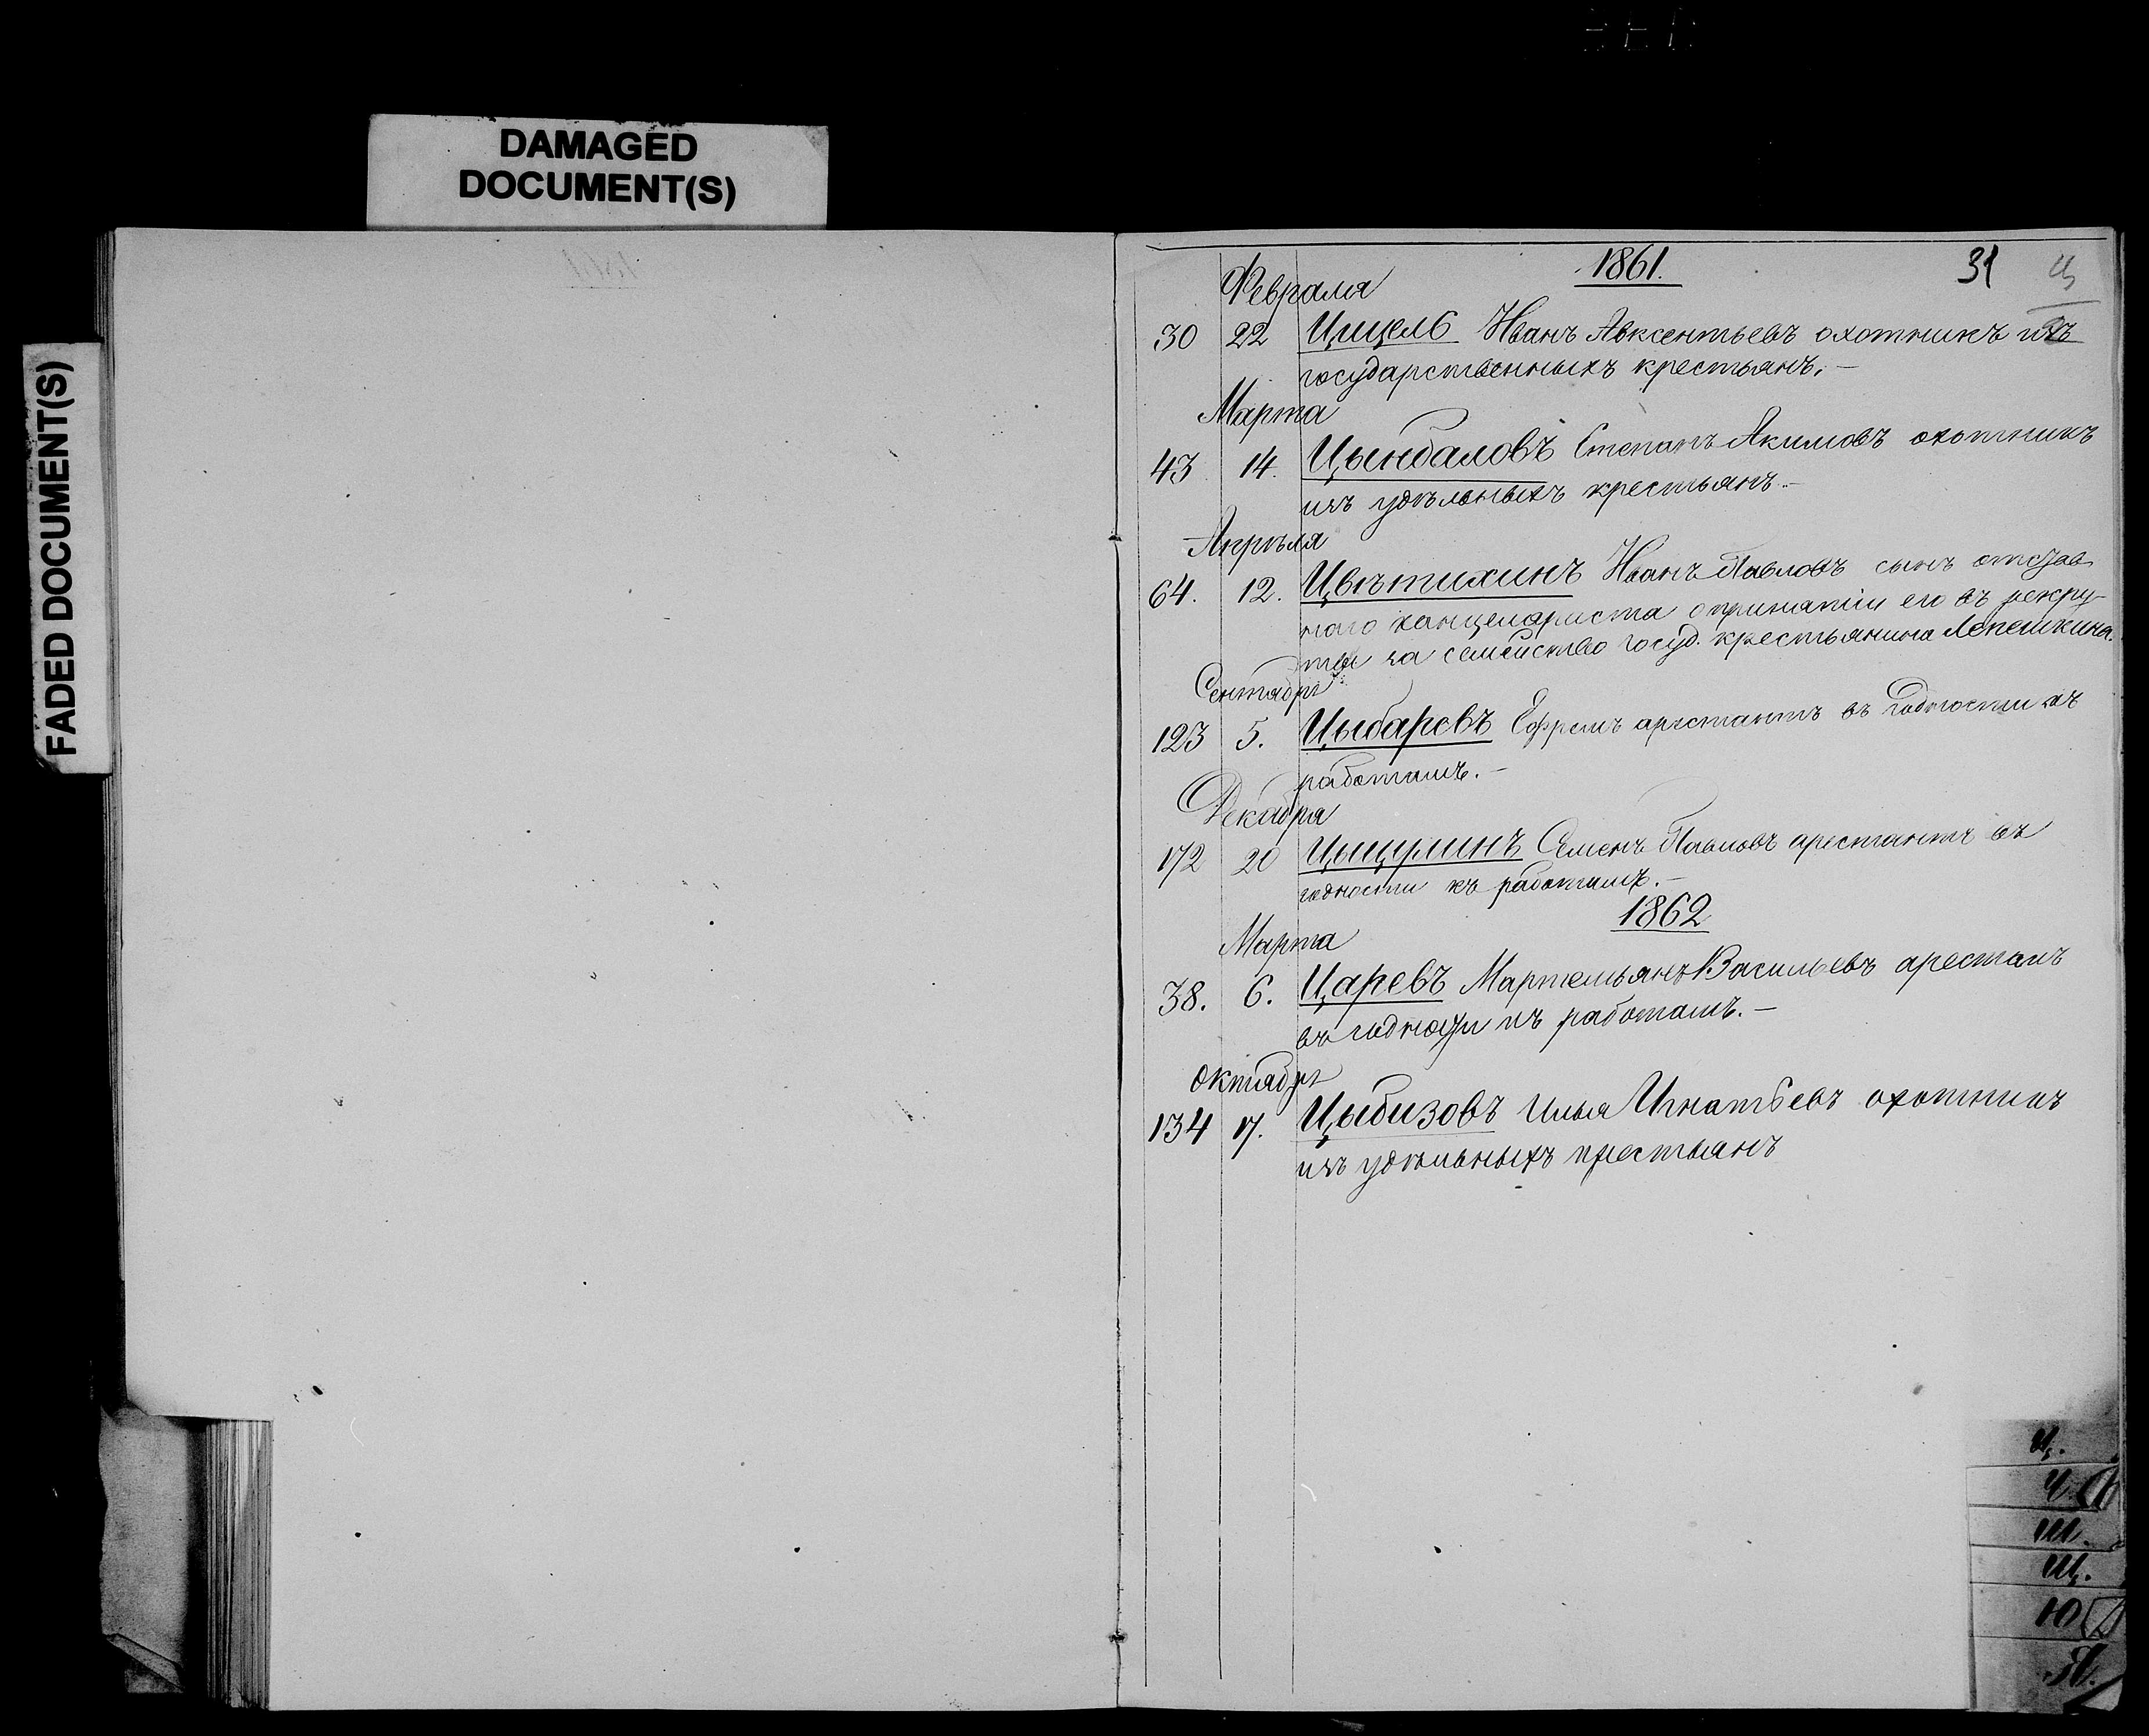 DAMAGED
DOCUMENT(S)
FADED DOCUMENT(S)
1861. 31 Ц
Февраля
30 22 Цицелъ Иванъ Авксентьевъ охотникъ изъ
государственныхъ крестьянъ. —
Марта
43 14. Цынбаловъ Степанъ Акимовъ охотникъ
изъ удѣльныхъ крестьянъ. –
Апрѣля
64. 12. Цвѣтихинъ Иванъ Павловъ сынъ отстав
наго канцеляриста о принятіи его въ рекру-
ты за семейство госуд. крестьянина Лепешкина.
Сентября
123 5. Цыбаревъ Ефремъ арестантъ въ годности къ
работамъ. –
Декабря
172 20 Семенъ Павловъ арестантъ въ
годности къ работамъ. –
1862
Марта
38. 6. Царевъ Мартемьянъ Васильевъ арестанъ
въ годности къ работамъ. –
Октября
134 17. Цыбизовъ Илья Игнатьевъ охотникъ
изъ удѣльныхъ крестьянъ
Ц.
Ч.
Ш.
Щ.
Ю
Я.